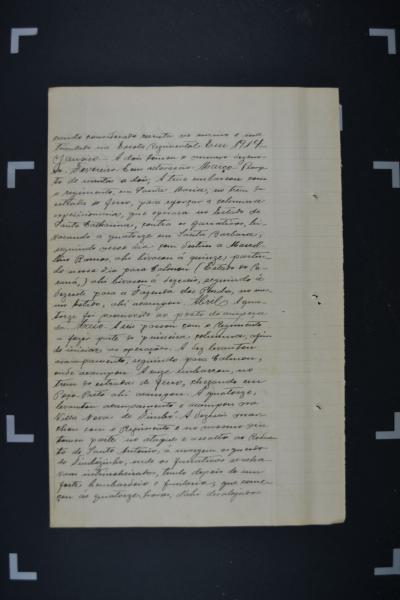 sendo considerado recruta no mesmo e ma
triculado na Escola Regimental. Em 1914
Janeiro - A dois tomou o numero
Fevereiro. Sem alteração. Março
A tres embarcou com
o regimento, em Santa Maria, no trem da
estrada de ferro, para reforçar a columna
expedicionaria, que operava no Estado de
Santa Catharina, contra os fanaticos, bi
vacando a quatorze em Santa Barbara,
seguindo nesse dia com destino a
Ramos, ahi bivacou á quinze, partin
do nesse dia para Calmon (Estado do Pa
raná,) ahi bivacou a dezeseis, seguindo á
para a Fazenda dos Pardos, no mes
mo Estado, ahi acampou. Abril. A qua
torze foi promovido ao posto de anspeça
da. Maio. A seis passou com o Regimento
a fazer parte da primeira columna, afim
de iniciar as operações. A dez levantou
acampamento, seguindo para Calmon,
onde acampou. A onze embarcou, no
trem da estrada de ferro, chegando em
Poço Preto ahi acampou. A quatorze,
levantou acampamento e acampou na
Villa Nova do Timbó. A dezeseis mar
chou com o Regimento e no mesmo dia
tomou parte no ataque e assalto ao Redu
to de Santo Antonio, a margem esquerda
do Timbózinho, onde os fanaticos se acha
vam entrincheirados, tendo depois de um
forte bombardeio e fuzilaria, que come
çou ás quatorze horas, dahi desalojados